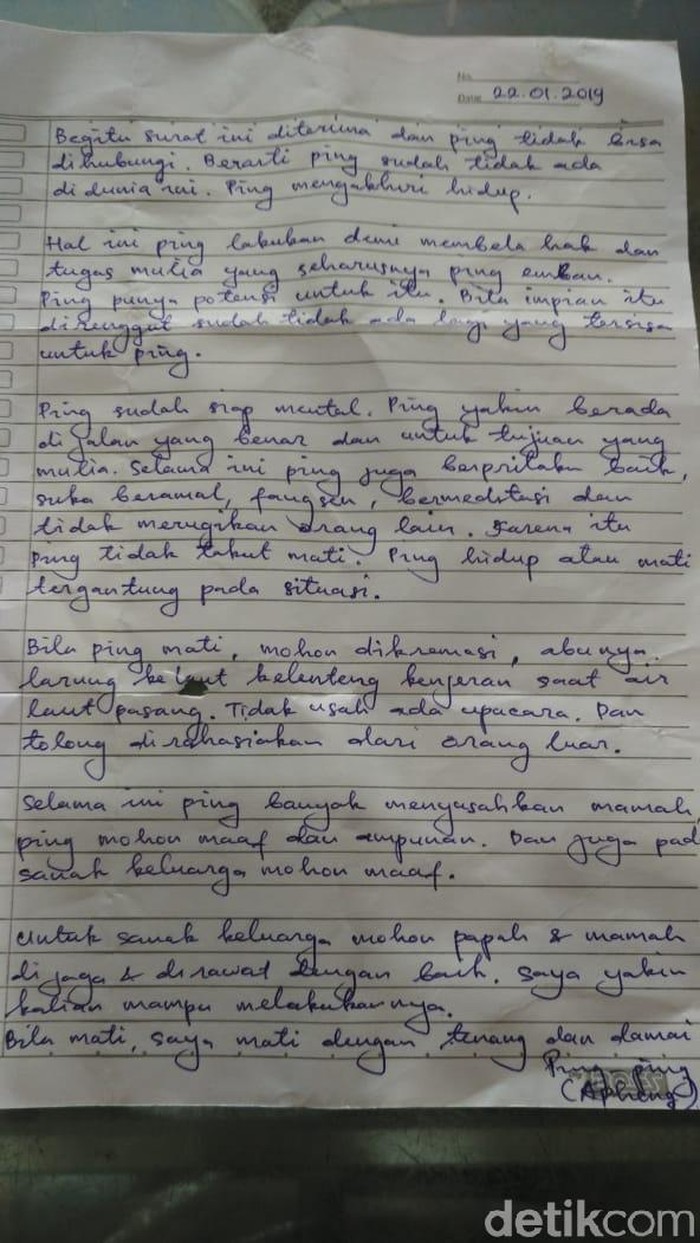 No.
Date 22.01.2019
Begitu surat ini diterima dan ping tidak bisa
dihubungi. Berarti ping sudah tidak ada
di dunia ini. Ping mengakhiri hidup.
Hal ini ping lakukan demi membela hak dan
tugas mulia yang seharusnya ping emban.
Ping punya potensi untuk itu. Bila impian itu
direnggut sudah tidak ada lagi yang tersisa
untuk ping.
Ping sudah siap mental. Ping yakin berada
di jalan yang benar dan untuk tujuan yang
mulia. Selama ini ping juga berprilaku baik,
suka beramal, fangsen, bermeditasi dan
tidak merugikan orang lain. Karena itu
Ping tidak takut mati. Ping hidup atau mati
tergantung pada situasi.
Bila ping mati, mohon dikremasi, abunya
larung ke laut kelenteng kenjeran saat air
laut pasang. Tidak usah ada upacara. Dan
tolong dirahasiakan dari orang luar.
Selama ini ping banyak menyusahkan mamah,
ping mohon maaf dan ampunan. Dan juga pad
sanak keluarga mohon maaf.
Untuk sanak keluarga mohon papah & mamah
dijaga & dirawat dengan baik. Saya yakin
kalian mampu melakukannya.
Bila mati, saya mati dengan tenang dan damai
Ping ping
(Apheng)
detikcom